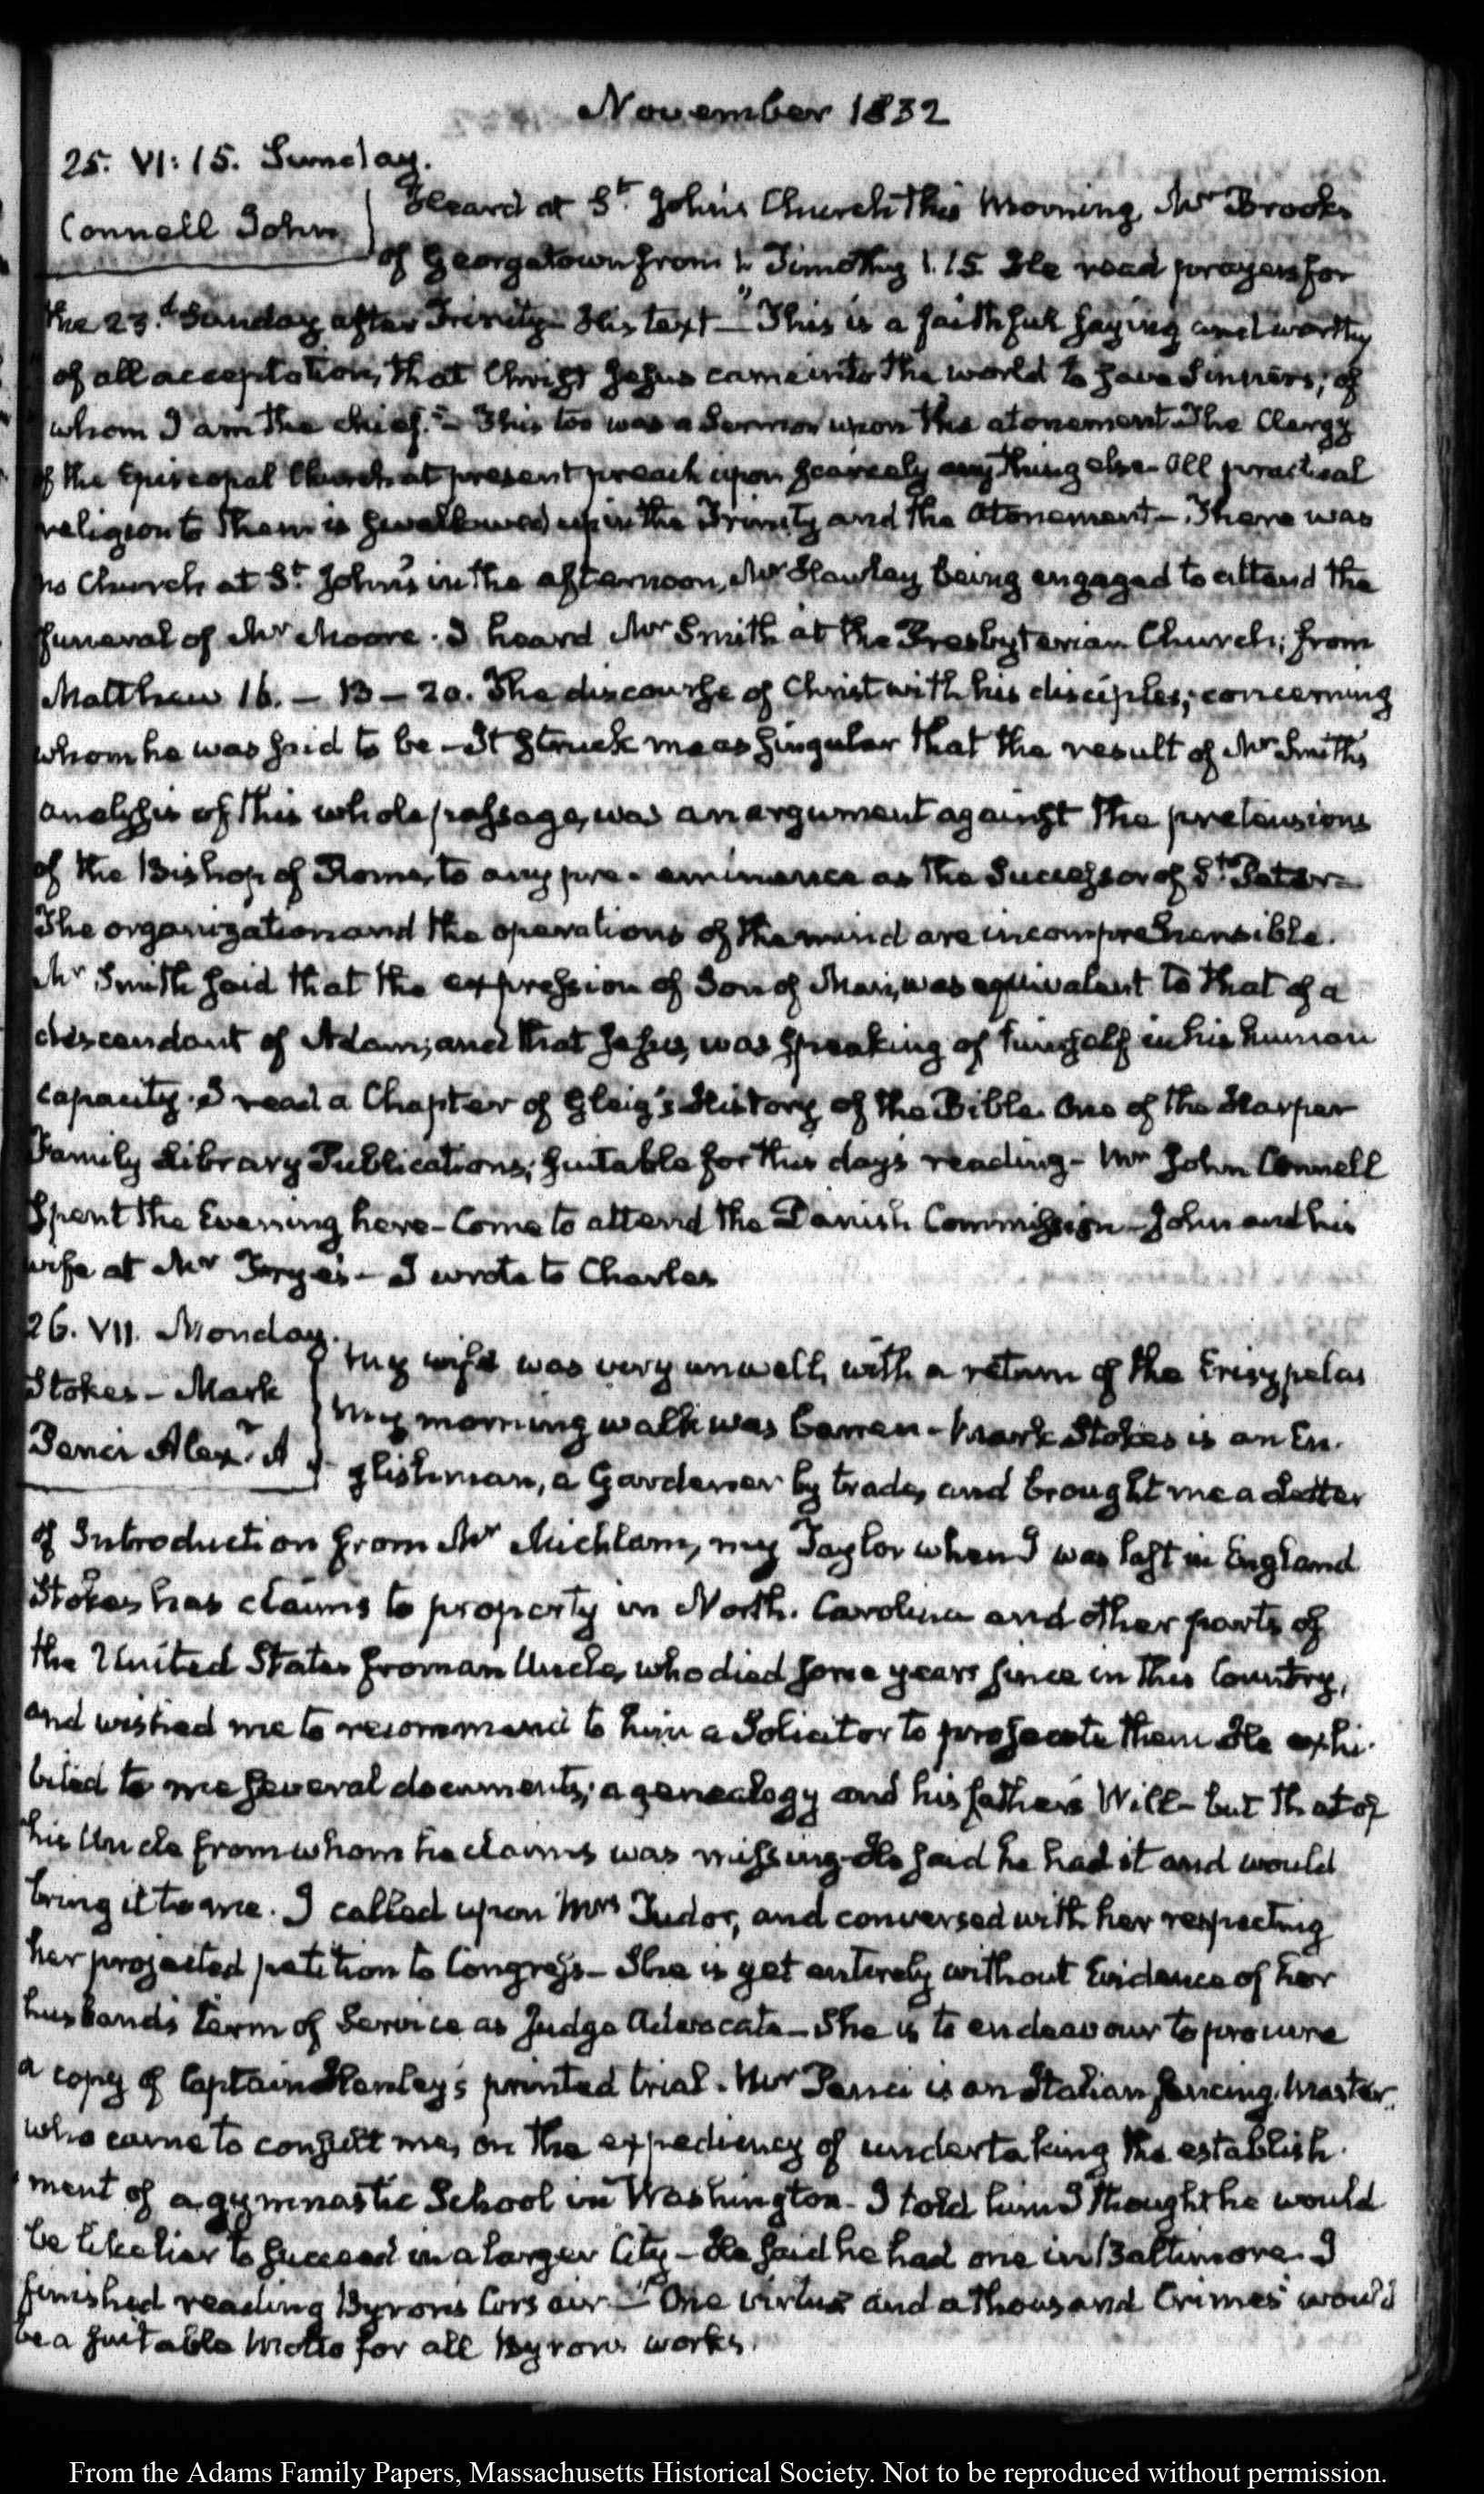 November 1832
25. VI: 15. Sunday.
Connell John
Heard at St. John's Church this Morning, Mr Brooke
of Georgetown from 1. Timothy 1. 15. He read prayers for
the 23.d Sunday after Trinity— His text— "This is a faithful saying and worthy
of all acceptation, that Christ Jesus came into the world to save Sinners; of
whom I am the chief."— This too was a Sermon upon the atonement. The Clergy
of the Episcopal Church at present preach upon scarcely any thing else— All practical
religion to them is swallowed up in the Trinity and the Atonement— There was
no Church at St. John's in the afternoon, Mr Hawley being engaged to attend the
funeral of Mr Moore. I heard Mr Smith at the Presbyterian Church; from
Matthew 16. — 13 — 20. The discourse of Christ with his disciples; concerning
whom he was said to be— It struck me as singular that the result of Mr Smith's
analysis of this whole passage, was an argument against the pretensions
of the Bishop of Rome, to any pre-eminence as the Successor of St. Peter—
The organization and the operations of the mind are incomprehensible.
Mr Smith said that the expression of Son of Man, was equivalent to that of a
descendant of Adam; and that Jesus, was speaking of himself in his human
capacity. I read a Chapter of Gleig's History of the Bible. One of the Harper
Family Library Publications; suitable for this day's reading— Mr John Connell
Spent the Evening here— Come to attend the Danish Commission— John and his
wife at Mr Frye's— I wrote to Charles
26. VII. Monday.
Stokes— Mark
Alexr. A
My wife was very unwell, with a return of the Erisypelas
My morning walk was barren— Mark Stokes is an En-
glishman, a Gardener by trade, and brought me a Letter
of Introduction from Mr my Taylor when I was last in England
Stokes has claims to property in North. Carolina and other parts of
the United States from an Uncle, who died some years since in this Country,
and wished me to recommend to him a Solicitor to prosecute them. He exhi-
bited to me several documents; a genealogy and his father's Will— but that of
his Uncle from whom he claims was missing— He said he had it and would
bring it to me. I called upon Mrs Tudor, and conversed with her respecting
her projected petition to Congress— She is yet entirely without Evidence of her
husband's term of Service as Judge Advocate— She is to endeavour to procure
a copy of Captain Henley's printed trial. Mr is an Italian fencing-Master,
who came to consult me, on the expediency of undertaking the establish-
ment of a gymnastic School in Washington— I told him I thought he would
be likelier to succeed in a larger City— He said he had one in Baltimore. I
finished reading Byron's Corsair— "One virtue and a thousand Crimes" would
be a suitable Motto for all Byron's works.
From the Adams Family Papers, Massachusetts Historical Society. Not to be reproduced without permission.